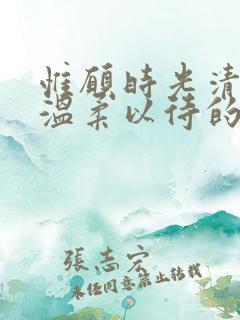 惟願時光清
溫柔以待的
張志宏
未经同意禁止转载